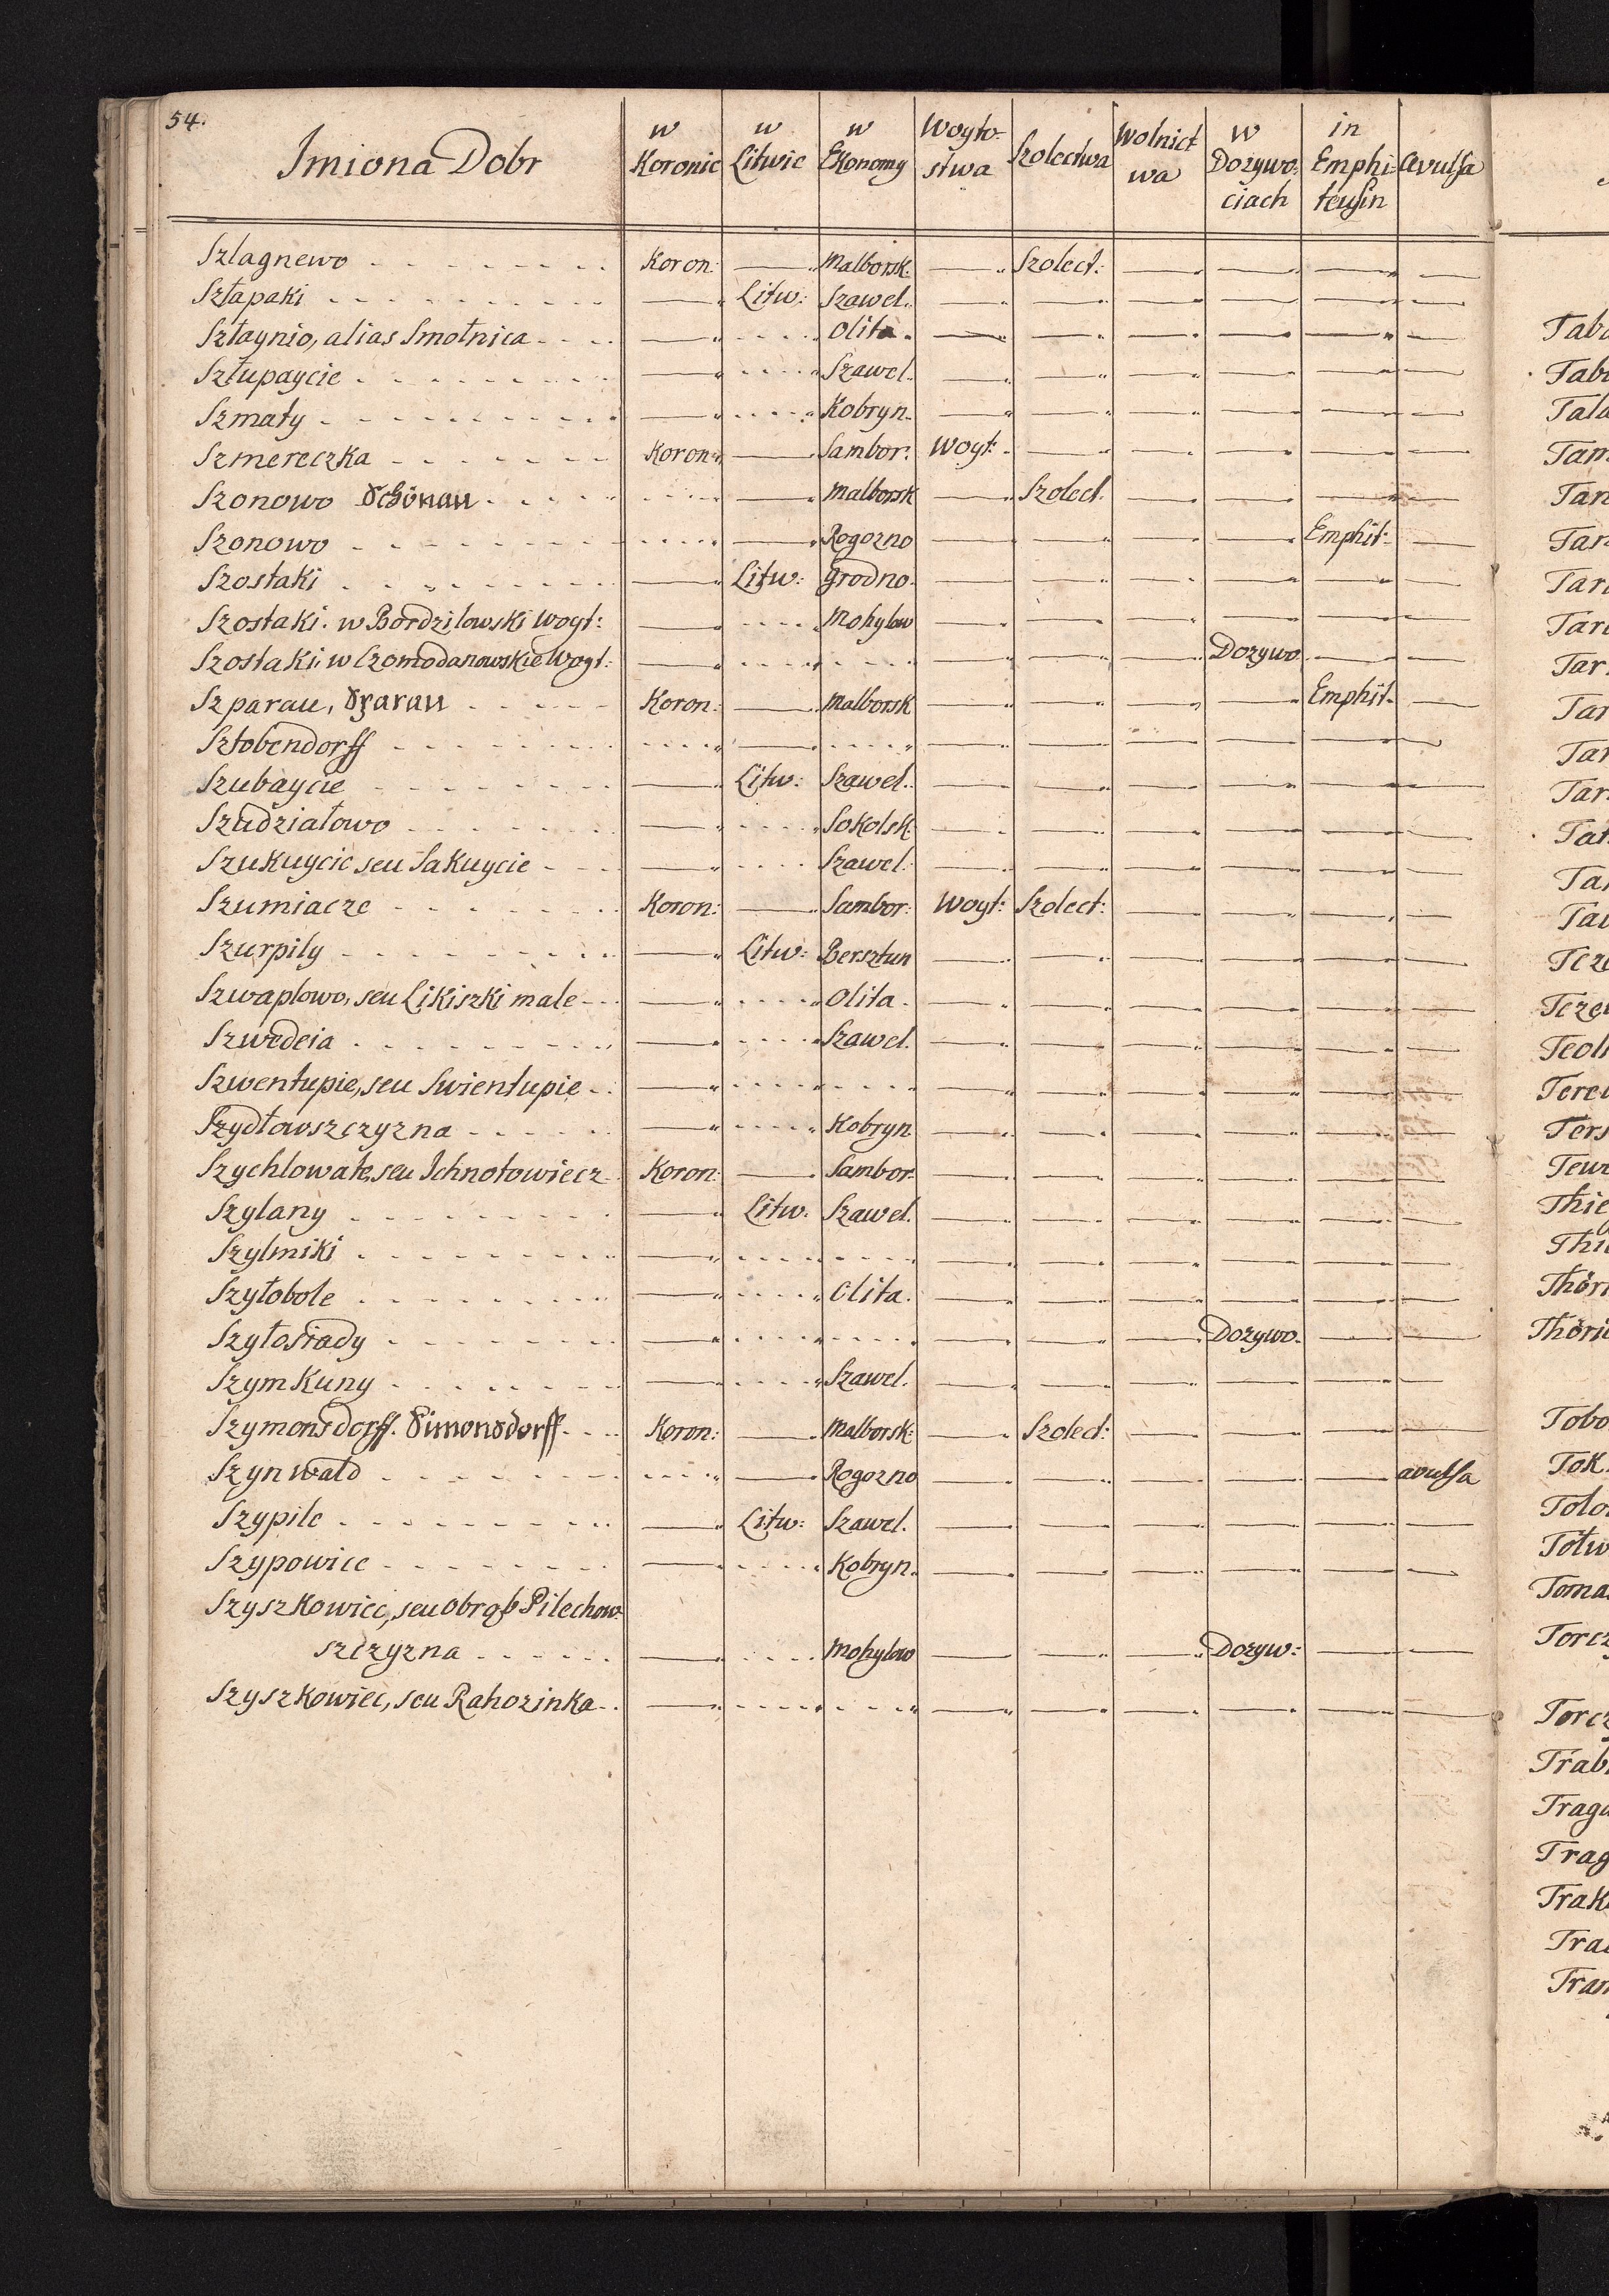 54.
Imiona Dobr | w Koronie | w Litwie | w Ekonomy | Woyto-stwa | Szolectwa | Wolnict wa | w Dozywo: ciach | in Emphi: teusin | Avulsa
Szlagnewo | Koron: | — | Malborsk. | — | Szolect: | — | — | — | —
Szłapaki | — | Litw: | Szawel. | — | — | — | — | — | —
Szłaynio, alias Smolnica | — | .... | Olita. | — | — | — | — | — | —
Szłupaycie | — | .... | Szawel. | — | — | — | — | — | —
Szmaty | — | .... | Kobryn. | — | — | — | — | — | —
Szmereczka | Koron: | — | Sambor: | Woyt: | — | — | — | — | —
Szonowo Schönau | .... | — | Malborsk | — | Szolect. | — | — | — | —
Szonowo | .... | — | Rogozno | — | — | — | — | Emphit: | —
Szostaki | — | Litw: | Grodno. | — | — | — | — | — | —
Szostaki. w Bordzilowski Woyt: | — | .... | Mohylow | — | — | — | — | — | —
Szostaki, w Czomodanowskie Woyt: | — | .... | .... | — | — | — | Dozywo | — | —
Szparau, Sparau | Koron: | — | Malborsk | — | — | — | — | Emphit. | —
Sztobendorff | .... | — | .... | — | — | — | — | — | —
Szubaycie | — | Litw: | Szawel. | — | — | — | — | — | —
Szudziałowo | — | .... | Sokolsk. | — | — | — | — | — | —
Szukuycie seu Sakuycie | — | .... | Szawel. | — | — | — | — | — | —
Szumiacze | Koron: | — | Sambor: | Woyt: | Szolect: | — | — | — | —
Szurpily | — | Litw: | Bersztun | — | — | — | — | — | —
Szwaplowo, seu Likiszki male | — | .... | Olita. | — | — | — | — | — | —
Szwedeia | — | .... | Szawel. | — | — | — | — | — | —
Szwentupie, seu Swientupie | — | .... | .... | — | — | — | — | — | —
Szydłowszczyzna | — | .... | Kobryn | — | — | — | — | — | —
Szychlowate, seu Ichnotowiecz | Koron: | — | Sambor. | — | — | — | — | — | —
Szylany | — | Litw. | Szawel. | — | — | — | — | — | —
Szylmiki | — | .... | .... | — | — | — | — | — | —
Szyłobole | — | .... | Olita. | — | — | — | — | — | —
Szyłosiady | — | .... | .... | — | — | — | Dozywo. | — | —
Szymkuny | — | .... | Szawel. | — | — | — | — | — | —
Szymonsdorff. Simonsdorff | Koron: | — | Malborsk: | — | Szolect: | — | — | — | —
Szynwałd | .... | — | Rogozno | — | — | — | — | — | avulsa
Szypile | — | Litw: | Szawel. | — | — | — | — | — | —
Szypowice | — | .... | Kobryn. | — | — | — | — | — | —
Szyszkowiec, seu Obrąb Pilechow
szczyzna | — | .... | Mohylow | — | — | — | Dozyw: | — | —
Szyszkowiec, seu Rahozinka | — | .... | .... | — | — | — | — | — | —